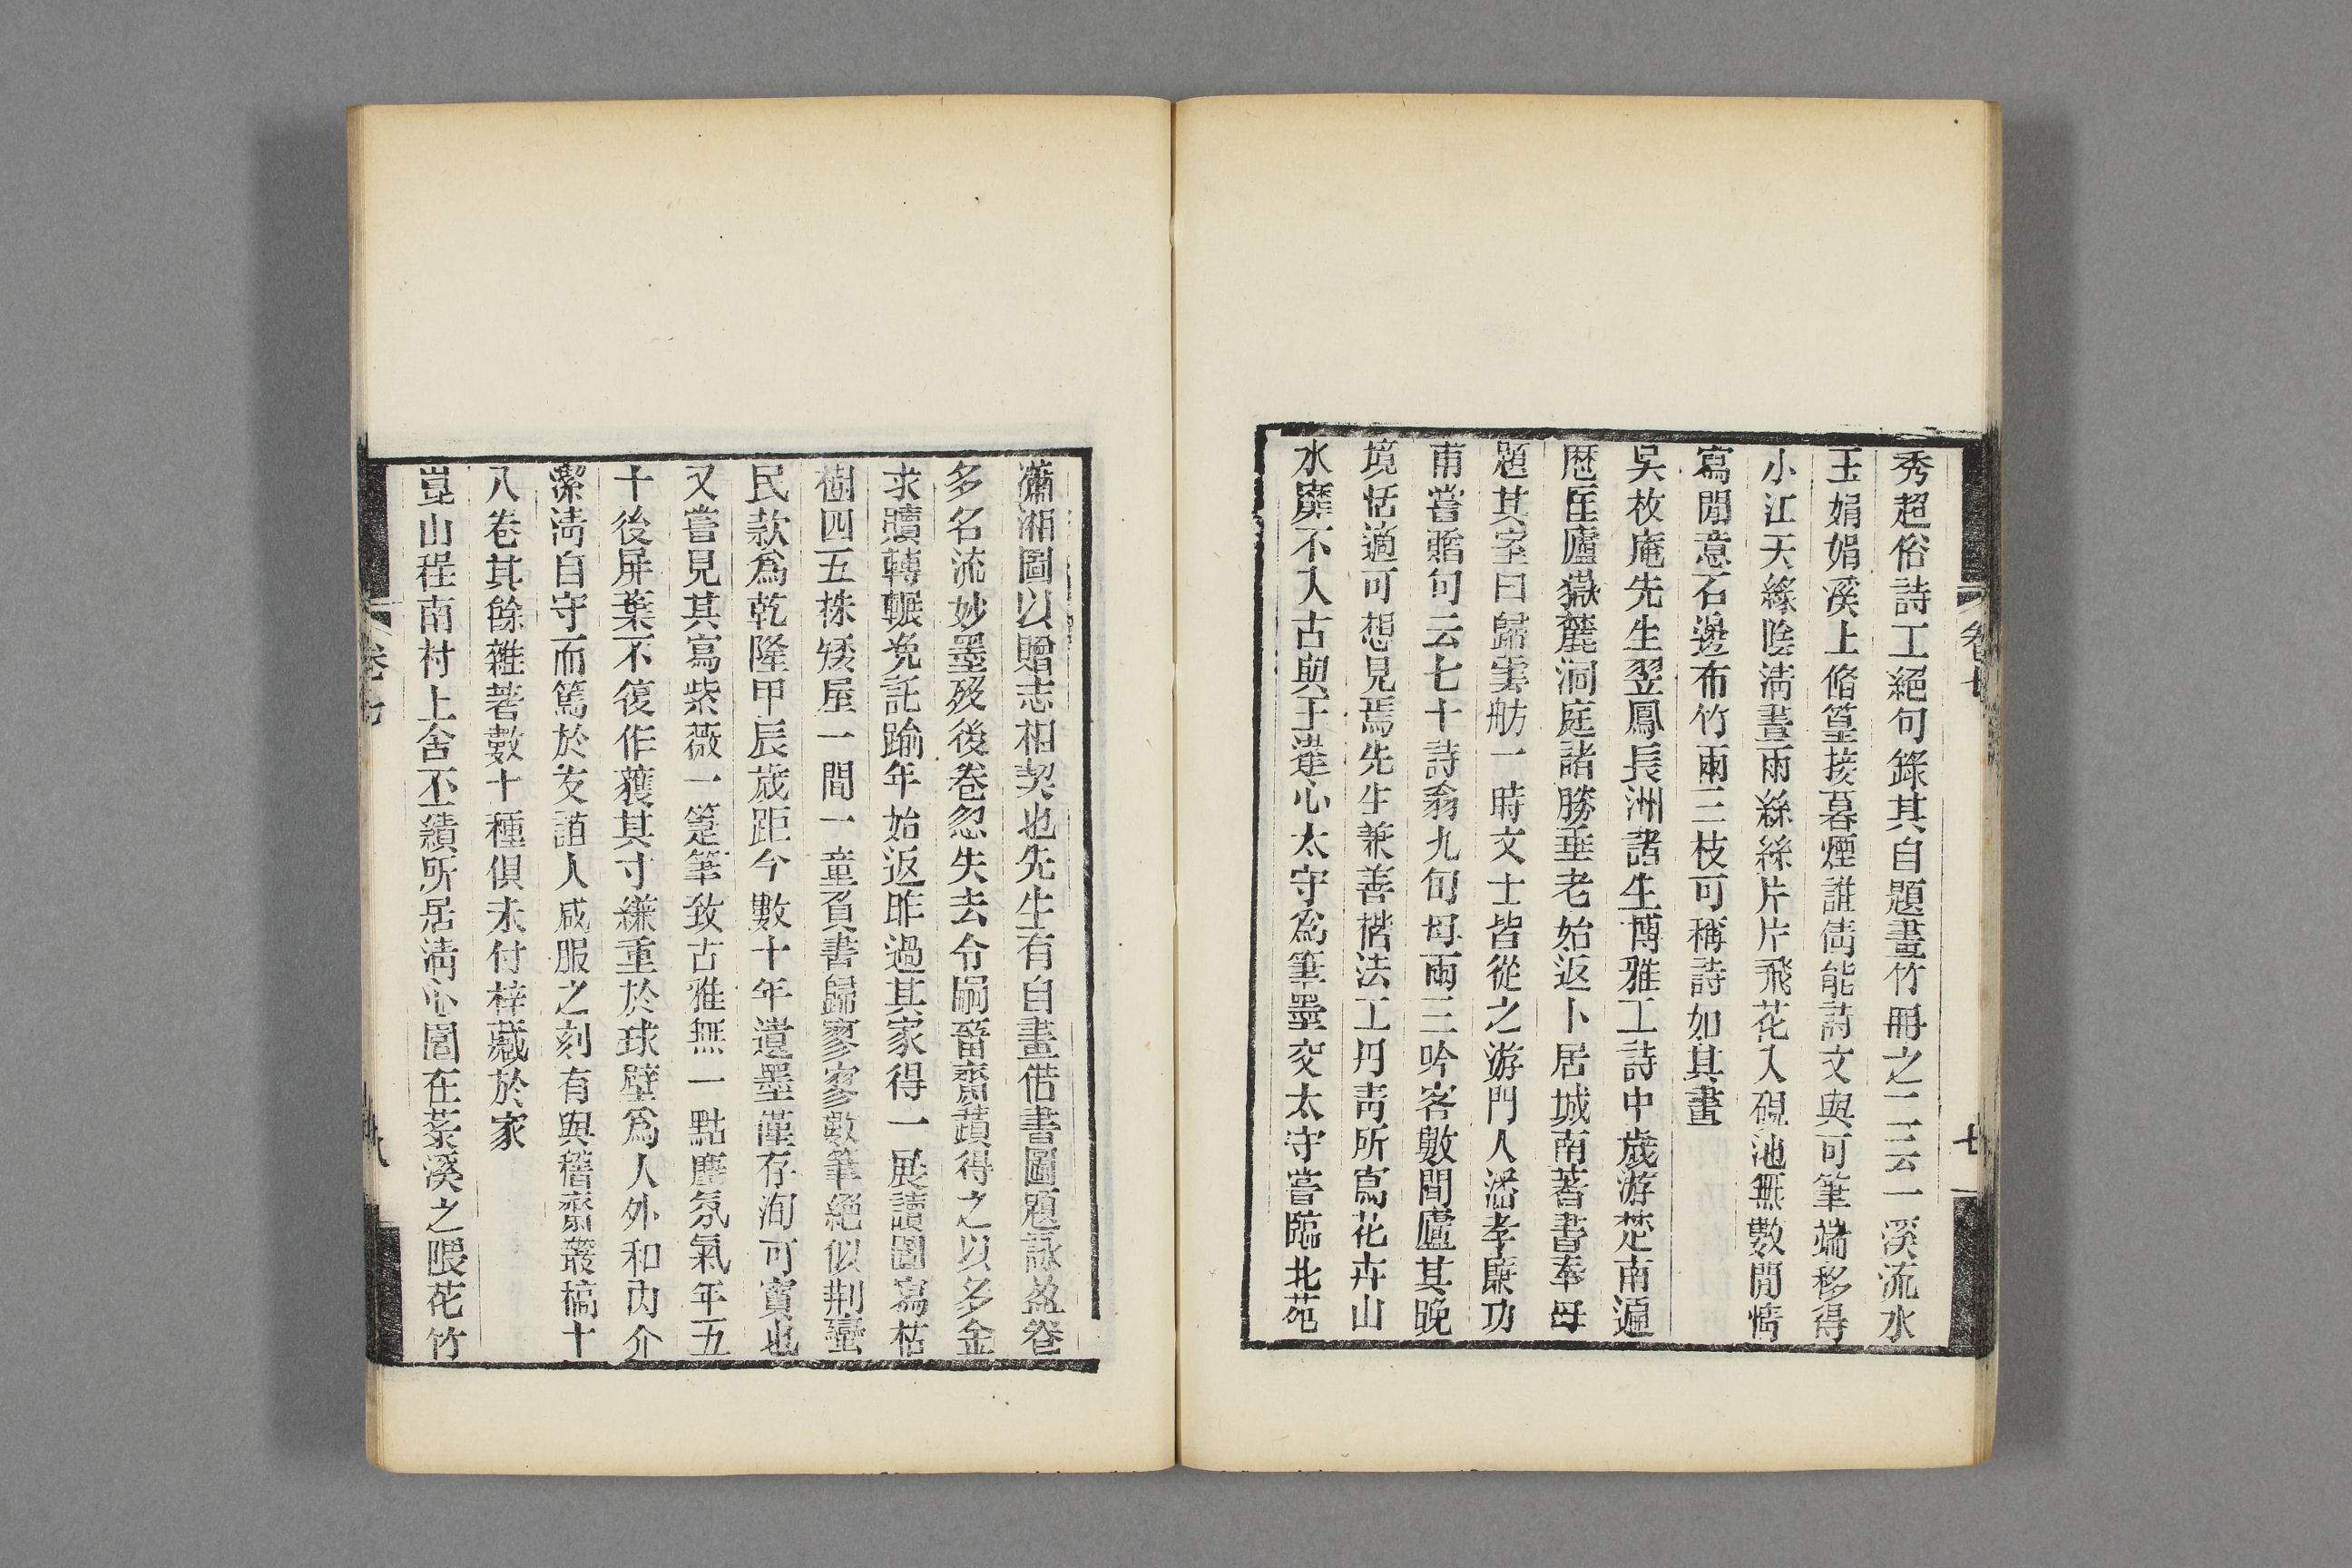 秀超俗詩工絕句錄其自題畫竹冊之二云一溪流水
玉娟娟溪上脩篁接暮煙誰倩能詩文與可筆端移得
小江天綠陰淸晝雨絲絲片片飛花入硯池無數閒情
寫閒意石邊布竹兩三枝可稱詩如其畫
吳枚庵先生翌鳳長洲諸生博雅工詩中歲游楚南遍
歷匡廬嶽麓洞庭諸勝垂老始返卜居城南著書奉母
題其室曰歸雲舫一時文士皆從之游門人潘孝廉功
甫嘗贈句云七十詩翁九旬母兩三吟客數間廬其晚
境恬適可想見焉先生兼善楷法工丹靑所寫花卉山
水靡不入古與王蓮心太守爲筆墨交太守嘗臨北苑
卷七
七
瀟湘圖以贈志相契也先生有自畫借書圖題詠盈卷
多名流妙墨歿後卷忽失去令嗣晉齋蹟得之以多金
求贖轉輾免託踰年始返昨過其家得一展讀圖寫枯
樹四五株矮屋一間一童負書歸寥寥數筆絕似荆蠻
民款爲乾隆甲辰歲距今數十年遺墨僅存洵可寶也
又嘗見其寫紫薇一箑筆致古雅無一點塵氛氣年五
十後屏棄不復作獲其寸縑重於球璧爲人外和內介
潔淸自守而篤於友誼人咸服之刻有與稽齋叢稿十
八卷其餘雜著數十種俱未付梓藏於家
崑山程南村上舍丕績所居淸心園在棻溪之隈花竹
卷七
八